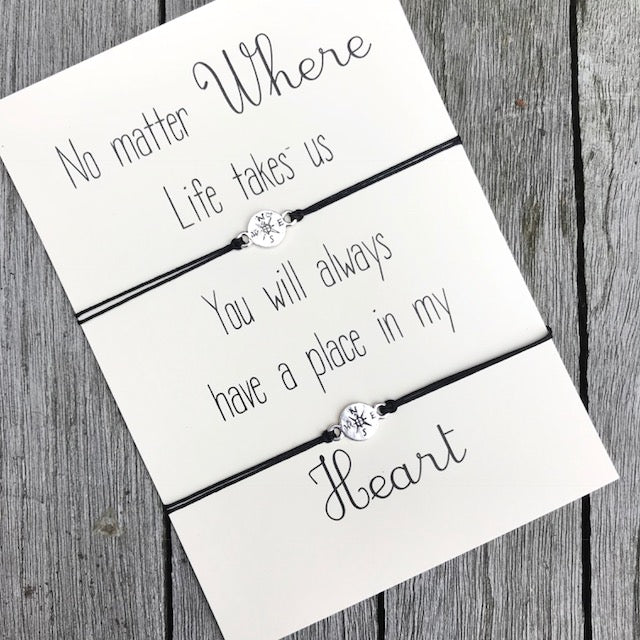 No matter Where
Life takes us
You will always
have a place in my
Heart